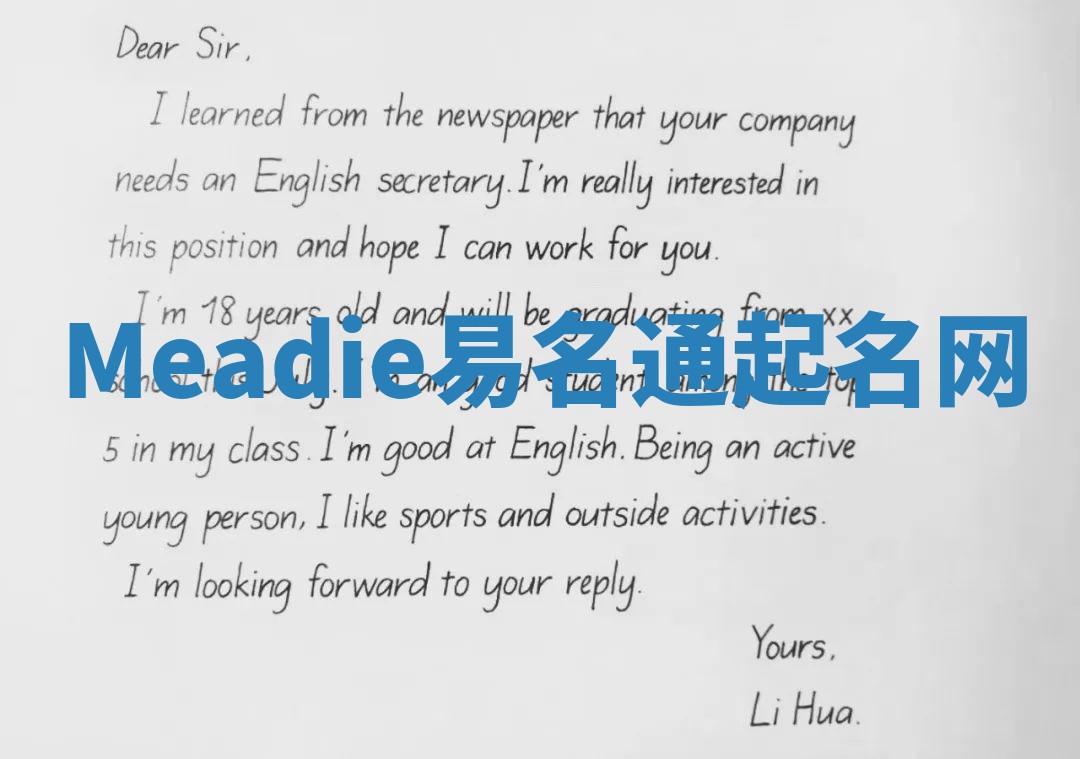 Dear Sir,
I learned from the newspaper that your company
needs an English secretary. I'm really interested in
this position and hope I can work for you.
I'm 18 years old and will be graduating from xx
Meadie易名通起名网
school this July. I'm an good student among the top
5 in my class. I'm good at English. Being an active
young person, I like sports and outside activities.
I'm looking forward to your reply.
Yours,
Li Hua.